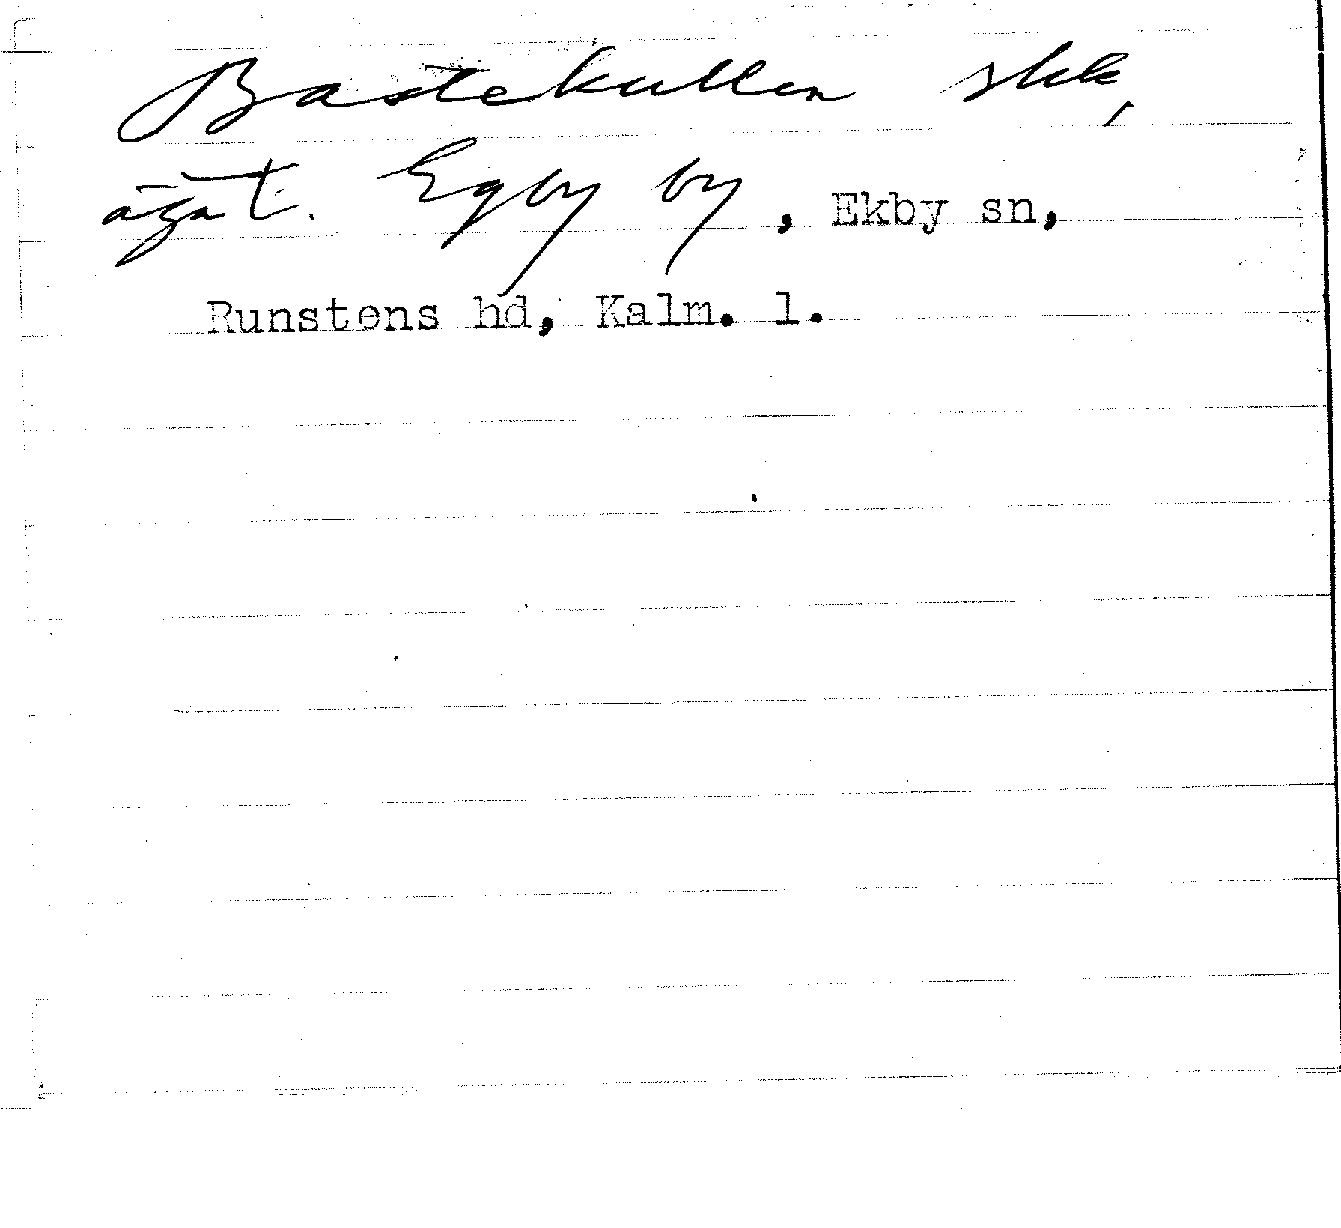 Bastekullen skk,
ägat. Egby by, Ekby sn,
Runstens hd, Kalm. l.